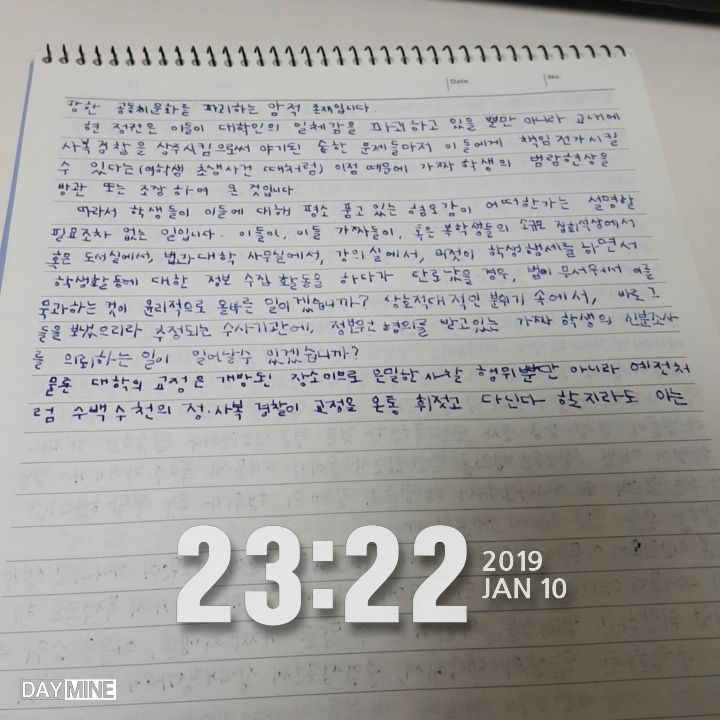 Date. No.
강한 공동체문화를 파괴하는 암적 존재입니다.
현 정권은 이들이 대학인의 일체감을 파괴하고 있을 뿐만 아니라 교내에
사복경찰을 상주시킴으로써 야기된 숱한 문제들마저 이들에게 책임전가시킬
수 있다는 (여학생 추행사건 때처럼) 이점 때문에 가짜학생의 범람현상을
방관 또는 조장하여 온 것입니다
따라서 학생들이 이들에 대해 평소 품고 있는 혐오감이 어떠한가는 설명할
필요조차 없는 일입니다. 이들이, 이들 가짜들이, 혹은 복학생들의 소규모 집회석상에서
혹은 도서실에서, 법과대학 사무실에서, 강의실에서, 버젓이 학생행세를 하면서
학생활동에 대한 정보 수집 활동을 하다가 탄로났을 경우, 법이 무서워서 이를
묵과하는 것이 윤리적으로 올바른 일이겠습니까? 상호적대적인 분위기 속에서, 바로 그
들을 보냈으리라 추정되는 수사기관에, 정보원 혐의를 받고있는 가짜학생의 신분조사
를 의뢰하는 일이 일어날수 있겠습니까?
물론 대학의 교정은 개방된 장소이므로 은밀한 사찰 행위뿐만 아니라 예전처
럼 수백 수천의 정·사복 경찰이 교정을 온통 휘젓고 다닌다 할지라도 아는
23:22
2019
JAN 10
DAYMINE